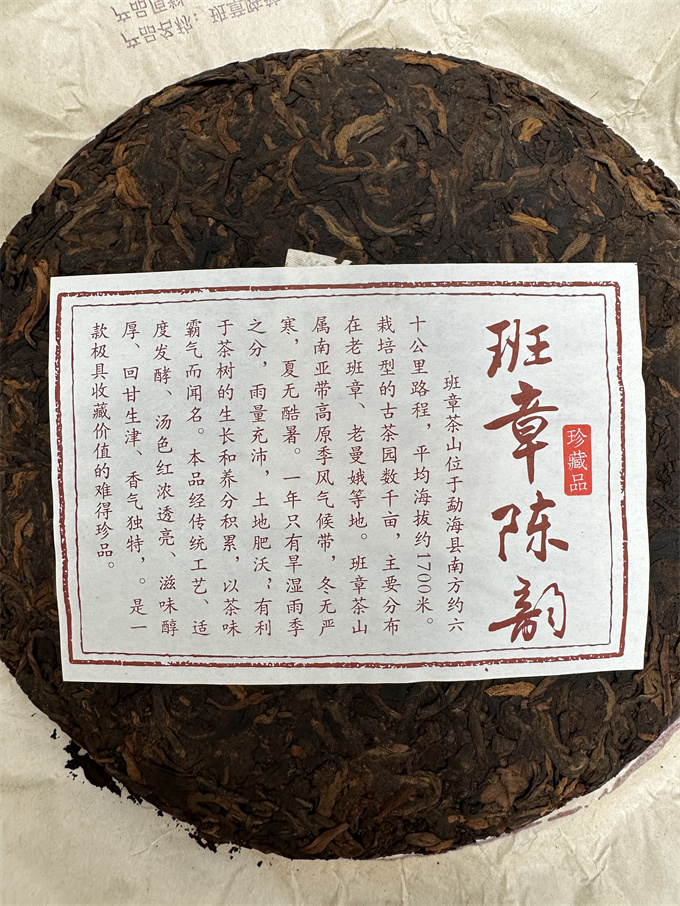 班章陈韵
珍藏品
班章茶山位于勐海县南方约六
十公里路程，平均海拔约1700米。
栽培型的古茶园数千亩，主要分布
在老班章、老曼娥等地。班章茶山
属南亚带高原季风气候带，冬无严
寒，夏无酷暑。一年只有旱湿雨季
之分，雨量充沛，土地肥沃?有利
于茶树的生长和养分积累，以茶味
霸气而闻名。本品经传统工艺、适
度发酵、汤色红浓透亮、滋味醇
厚、回甘生津、香气独特，。是一
款极具收藏价值的难得珍品。
产品名称：班章
产品原料